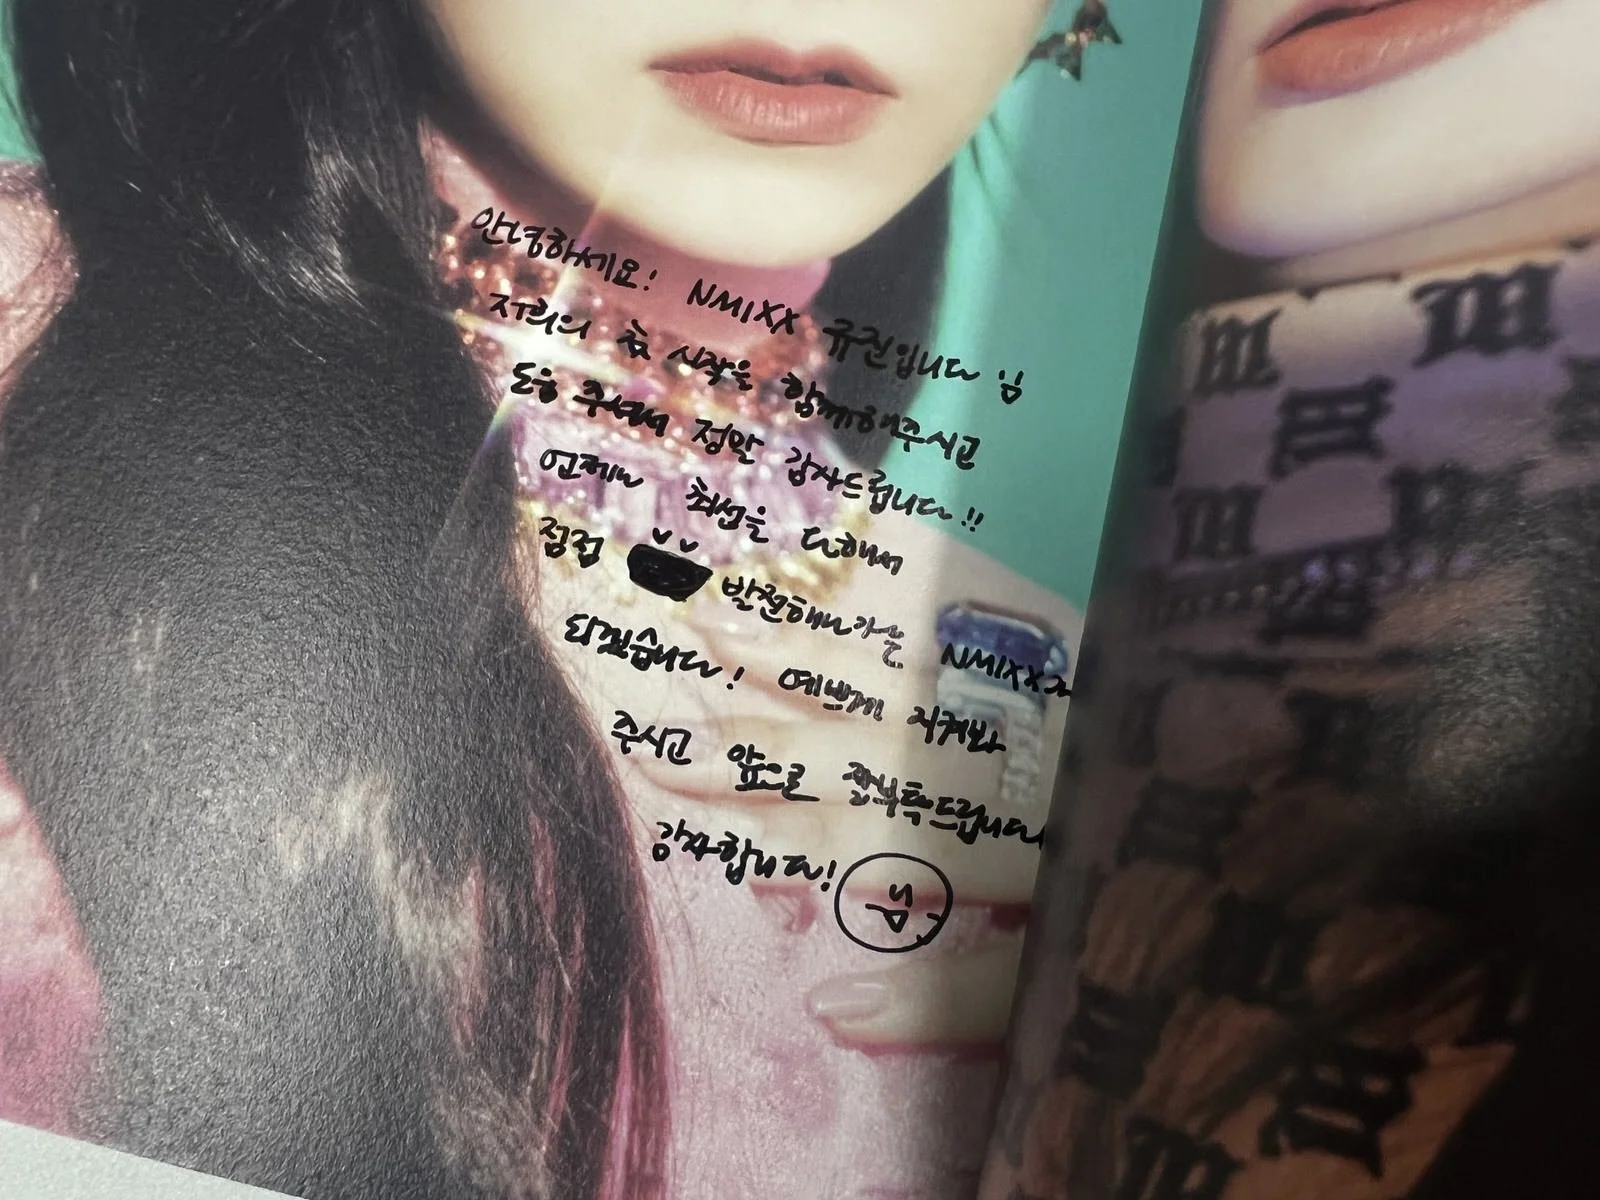 안녕하세요! NMIXX 규진입니다
저희의 첫 시작을 함께해주시고
도움 주셔서 정말 감사드립니다!!
언제나 최선을 다해서
점점 발전해나가는 NMIXX가
되겠습니다! 예쁘게 지켜봐
주시고 앞으로 잘부탁드립니다
감사합니다!